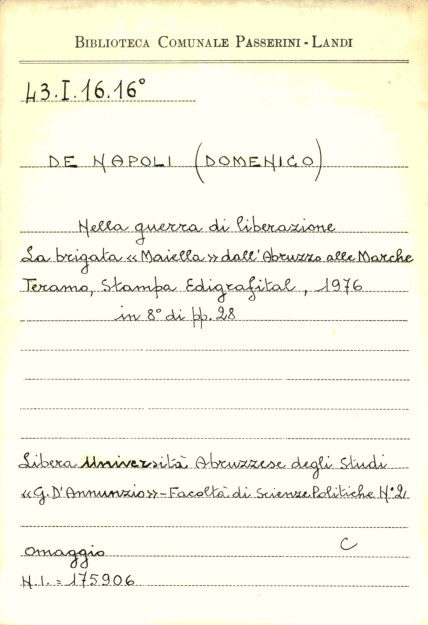 BIBLIOTECA COMUNALE PASSERINI - LANDI
43.I.16.16°
DE NAPOLI (DOMENICO)
Nella guerra di liberazione
La brigata «Maiella» dall'Abruzzo alle Marche
Teramo, Stampa Edigrafital, 1976
in 8° di pp. 28
Libera Università Abruzzese degli Studi
«G. D'Annunzio» - Facoltà di Scienze Politiche N° 2
omaggio C
N.I. = 175906